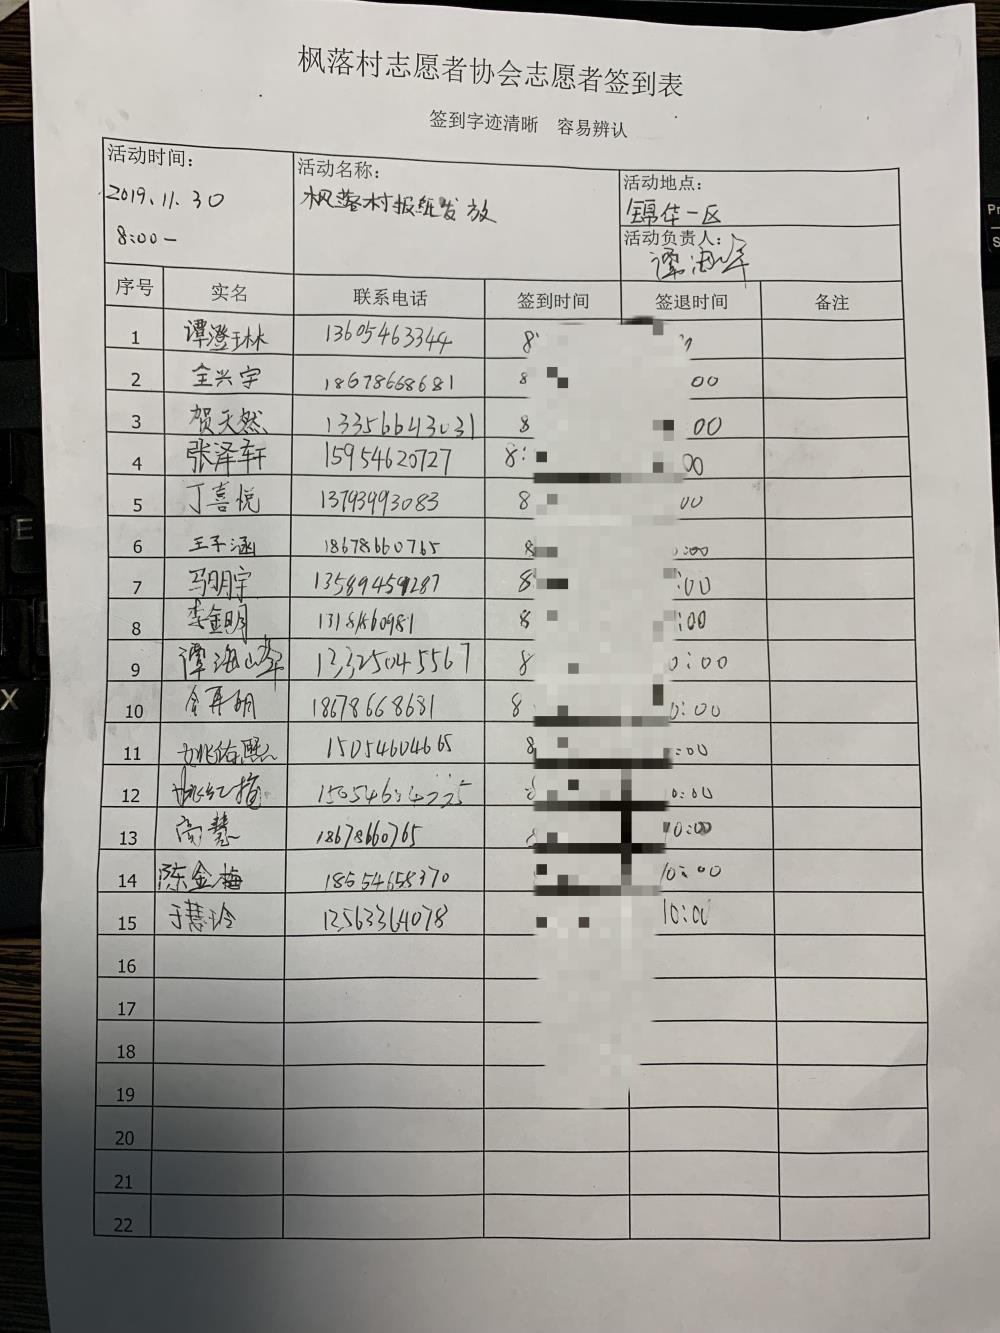 枫落村志愿者协会志愿者签到表
签到字迹清晰 容易辨认
活动时间: 2019.11.30 8:00-
活动名称: 枫落村报纸发放
活动地点: 锦华一区
活动负责人: 谭海峰
序号 实名 联系电话 签到时间 签退时间 备注
1 谭澄琳 13605463344 8:
2 全兴宇 18678668681 8 00
3 贺天然 13356643031 8 00
4 张泽轩 15954620727 8: 00
5 丁喜悦 13793993083 8 00
6 王子涵 18678660765 8 :00
7 马明宇 13589459287 8 :00
8 李金明 8 :00
9 谭海峰 13325045567 8 0:00
10 18678668681 8 0:00
11 姚佑熙 15054604665 8 0:00
12 0:00
13 高慧 18678660765 10:00
14 陈金梅 18554658370 10:00
15 于慧玲 10:00
16
17
18
19
20
21
22
E
X